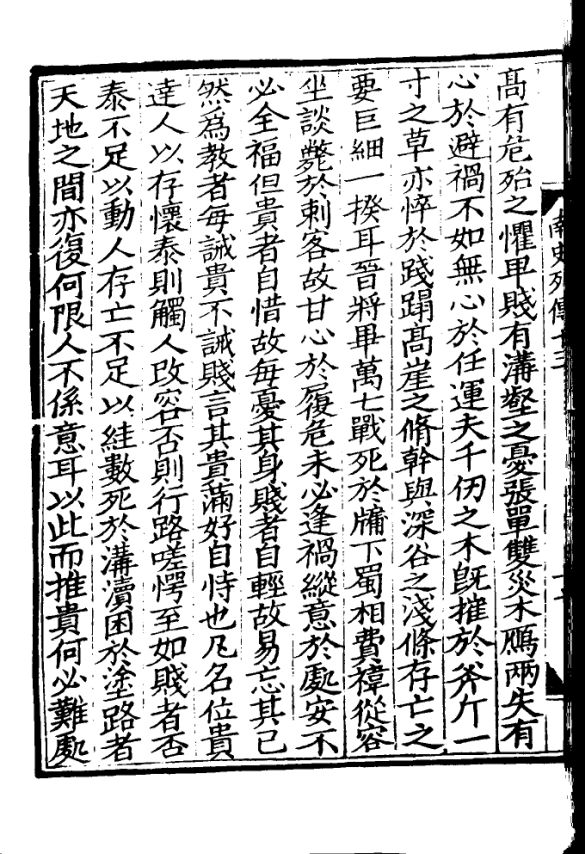 南史列傳十三
高有危殆之懼卑賤有溝壑之憂張單雙災木鴈兩失有
心於避禍不如無心於任運夫千仞之木旣摧於斧斤一
寸之草亦悴於踐蹋高崖之脩幹與深谷之淺條存亡之
要巨細一揆耳晉將畢萬七戰死於牖下蜀相費禕從容
坐談斃於刺客故甘心於履危未必逢禍縱意於處安不
必全福但貴者自惜故每憂其身賤者自輕故易忘其已
然爲教者每誡貴不誡賤言其貴滿好自恃也凡名位貴
達人以存懷泰則觸人改容否則行路嗟愕至如賤者否
泰不足以動人存亡不足以絓數死於溝瀆困於塗路者
天地之間亦復何限人不係意耳以此而推貴何必難處